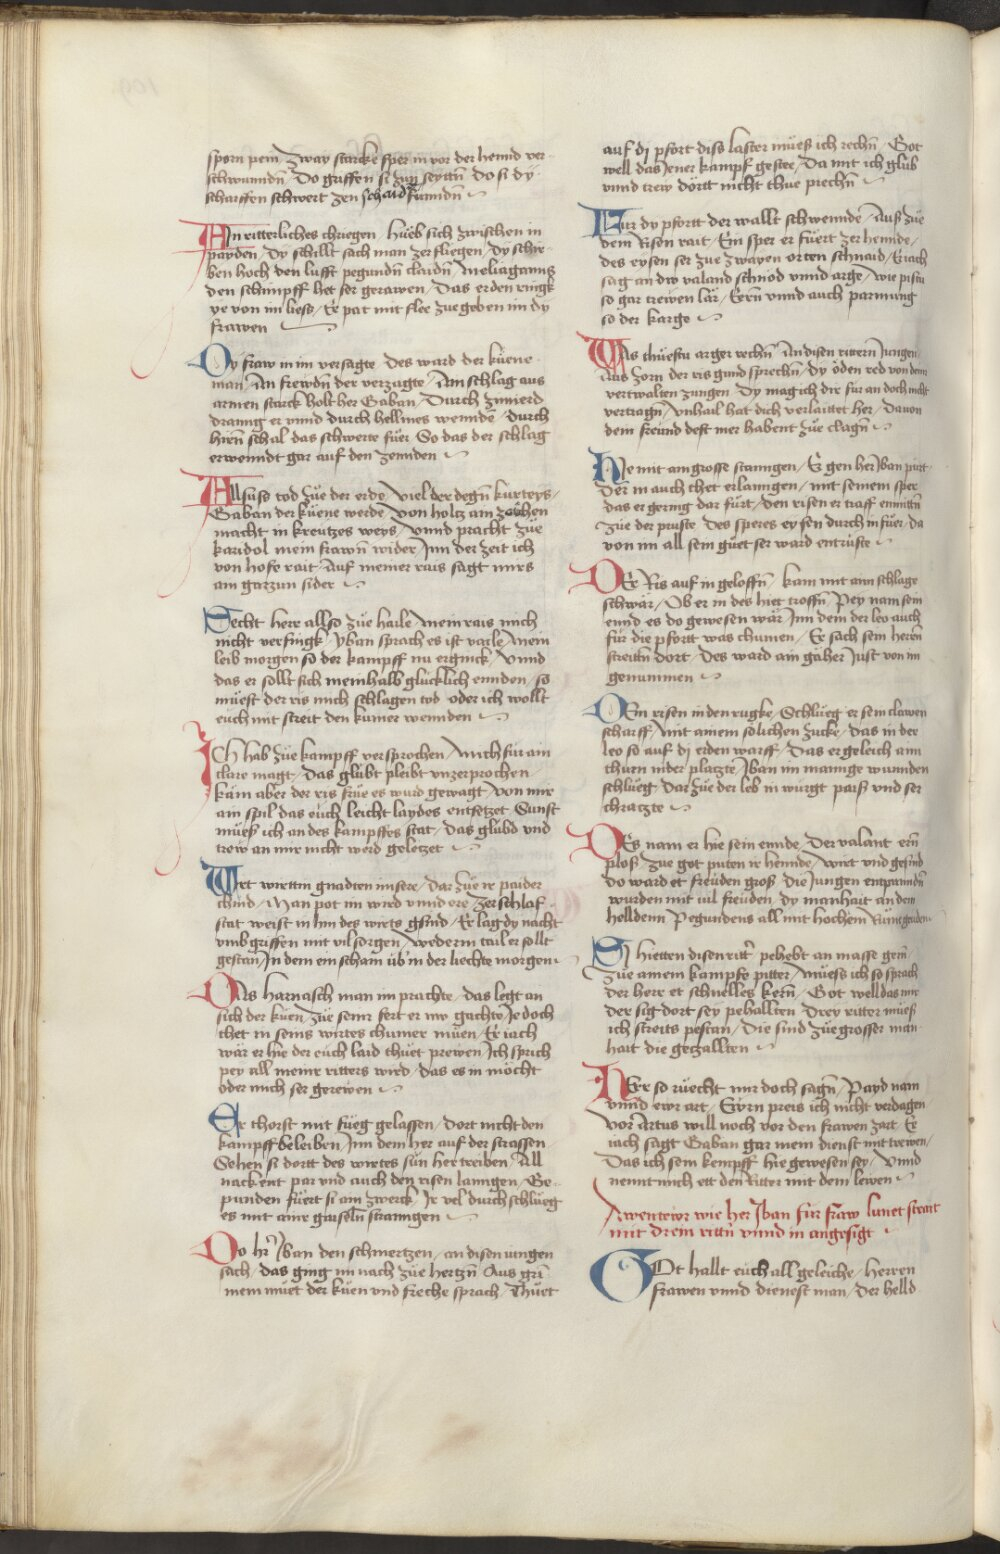 sporn pein / Zway starcke sper in vor der hennd ver-
schwunndn̄ / Do griffen si zun seyttn̄ do si dy
scharffen schwert zen schaidn̄ funndn̄
AIn ritterliches chriegen / Hueb sich zwischen in
payden / Dy schillt sach man zerfliegen / Dy schir-
ben hoch den lufft pegundn̄ claidn̄ / Meliaganns
den schimpff het ser gerawen / Das er den ringk
ye von im liess / Er pat mit flee zue geben im dy
frawen
DY fraw in im versagte / Des ward der küene
man / An frewdn̄ der verzagte / Ain schlag aus
armen starck holt her Gaban / Durch zimierd
dranng er vnnd durch hellmes wennde / Durch
hirn schal das schwerte fuer / So das der schlag
erwenndt gar auf den zennden
ALlsüso tod züe der erde / Viel der degn̄ kurteys /
Gaban der küene werde / Von holtz ain zaichen
macht in kreutzes weys / Vnnd pracht züe
karidol mein frawn̄ wider / Inn der zeit ich
von hofe rait / Auf meiner rais sagt mirs
ain garzun sider
SEcht here allso züe haile / Mein rais mich
nicht verfingk / Yban sprach es ist vaile / Mein
leib morgen so der kampff nu erginck / Vnnd
das er sollt sich meinhalb glücklich ennden / so
müest der ris mich schlagen tod oder ich wollt
euch mit streit den kumer wennden
ICh hab züe kampff versprochen / Mich für ain
clare magt / Das glübt pleibt vnzerprochen /
käm aber der ris früe es wurd gewagt / Von mir
ain spil das euch leicht laydes entsetzet / Sunst
müess ich an des kampffes stat / Das glübd vnd
trew an mir nicht werd geletzet
WIrt wirttin gnadten im sere / Dar züe ir paider
chind / Man pot im wird vnnd ere / Zer schlaf
stat weist in hin des wirts gsind / Er lag dy nacht
vmbgriffen mit vil sorgen / Wederm tail er sollt
gestan / In dem ein scham üb in der liechte morgen
DAs harnasch man im prachte / das legt an
sich der küen / Züe seinr fert er im gachte / Iedoch
thet in seins wirtes chumer müen / Er iach
wär er hie der euch laid thuet prewen / Ich sprich
pey all meinr ritters wird / das es in möcht
oder mich ser gerewen
ER thorst mit füeg gelassen / dort nicht den
kampff beleiben / Inn dem her auf der strassen
Sehen si dortt des wirtes sün her treiben / All
nackent par vnd auch den risen lanngen / Ge-
punden füert si am zwerck / Ir vel durchschlueg
es mit ainr gaiseln stranngen
DO hr̄ Iban den schmertzen / an disen iungen
sach / das ging im nach züe hertzn̄ / Aus gri-
mem müet der küen vnd freche sprach / Thüet
auf dj pfort diss laster müess ich rechn̄ / Got
well das iener kampf gestee / Da mit ich glüb
vnnd trew dörtt nicht thue prechn̄
FUr dy pfortt der wallt schwennde / Auss züe
dem Risen rait / Ein sper er füert zer hennde /
des eysen ser züe zwayen orten schnaid / Er iach
sag an dw valand schnöd vnnd arge / Wie pistu
so gar trewen lär / Eern vnnd auch parmung
so der karge
WAs thuestu arger rechn̄ / An disen rittern Iungen /
Aus zorn der ris gund sprechn̄ / Dy öden red von deiner
vertwalten zungen / Dy mag ich dir für an doch nicht
vertragn̄ / Vnhail hat dich verlaittet her / Dauon
dem freund dest mer habent züe clagn̄
HIe mit ain grosse stanngen / Er gen her Iban purt
Der in auch thet erlanngen / mit seinem sper
das er gering dar fürt / den risen er traff enmittn̄
züe der pruste / Des speres eysen durch in fuer / da
von im all sein güet ser ward entrüste
DEr Ris auf in geloffn̄ / kam mit aim schlage
schwär / Ob er in des hiet troffn̄ / Pey nam sein
ennd es do gewesen wär / Inn dem der leo auch
für die pfortt was chumen / Er sach sein herrn̄
streittn̄ dort / Des ward ain gäher Iust von im
genummen
DEm risen in den rugke / Schlueg er sein clawen
scharff / Mit ainem solichen zucke / das in der
leo so auf dj erden warff / Das er geleich aim
thurn nider platzte / Iban im mannge wunnden
schlueg / Dar züe der leb in würgt paiss vnd ser
chratzte
DEs nam er hie sein ennde / Der valant ern̄
ploss / Zue got puten ir hennde / Wirt vnd gesind
do ward et freüden gross / Die Iungen entpunndn̄
wurden mit vil freüden / dy manhait an dem
helldenn / Pegundens all mit hochem Rüme geuden
SI hietten disen rittr̄ pehebt an masse gern̄ /
Züe ainem kampfe pitter / Muess ich so sprach
der here et schnelles kern̄ / Got well das mir
der sig dort sey pehallten / Drey ritter müess
ich streits pestan / Die sind züe grosser man-
hait die gezallten
HErr so rüecht mir doch sagn̄ / Payd nam
vnnd ewr art / Ewrn preis ich nicht verdagen
Vor Artus will noch vor den frawen zart / Er
iach sagt Gaban gar mein dienst mit trewen /
Das ich sein kempff hie gewesen sey / Vnnd
nennt mich ett den Ritter mit dem lewen
Awenteur wie her Iban für fraw lunet streit
mit drein rittn̄ vnnd in angesigt
GOt hallt euch all geleiche / Herren
frawen vnnd dienest man / Der helld